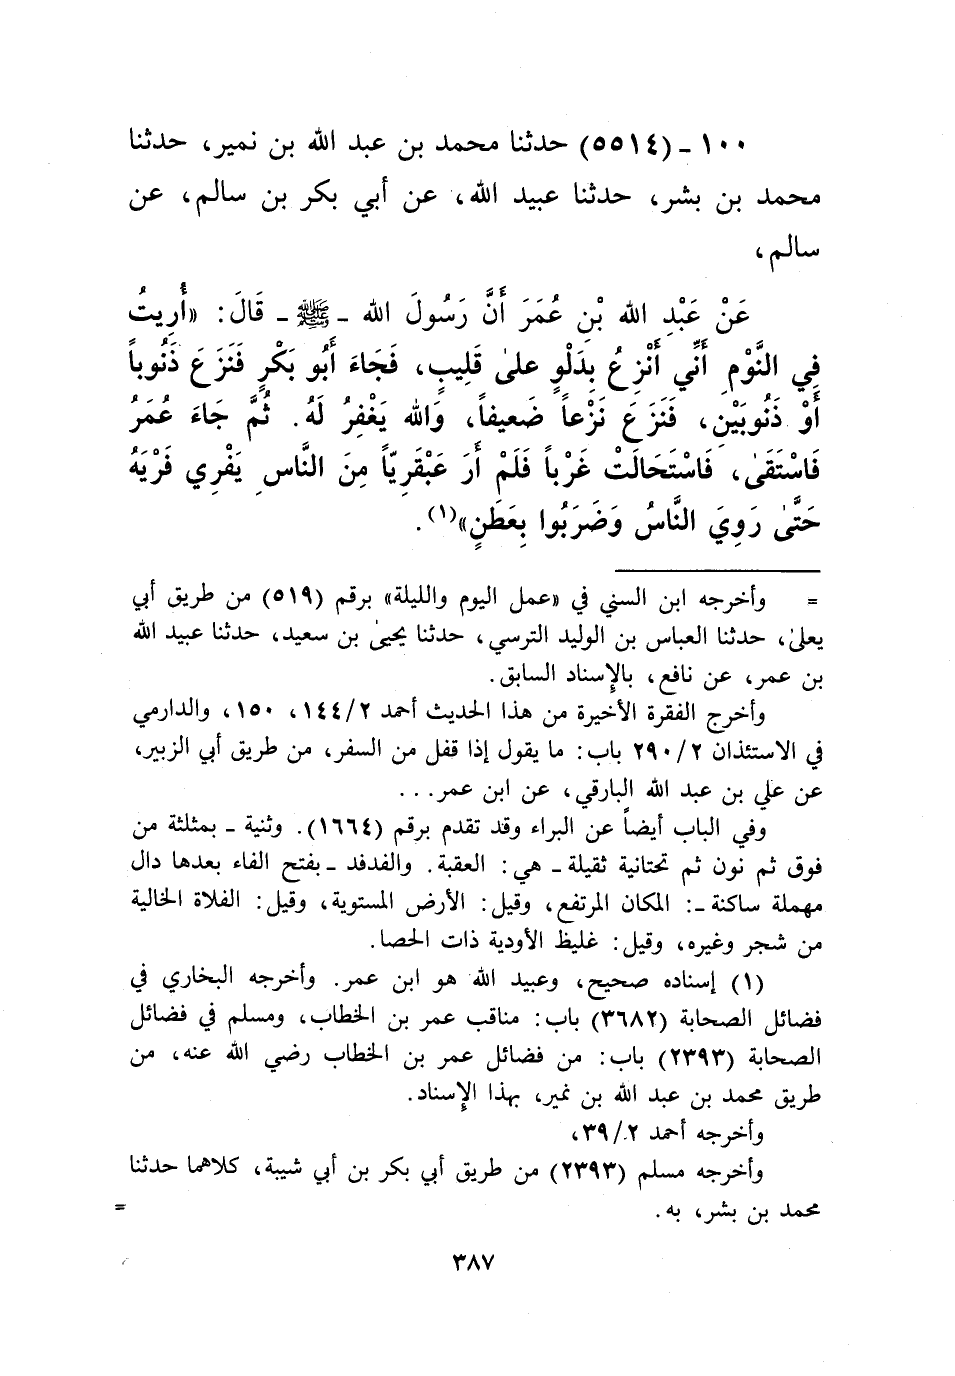 ١٠٠ - (٥٥١٤) حدثنا محمد بن عبد الله بن نمير، حدثنا
محمد بن بشر، حدثنا عبيد الله، عن أبي بكر بن سالم، عن
سالم،
عَنْ عَبْدِ الله بْنِ عُمَرَ أَنَّ رَسُولَ الله - ﷺ - قَالَ: «أُرِيتُ
فِي النَّوْمِ أَنِّي أَنْزِعُ بِدَلْوٍ علىٰ قَلِيبٍ، فَجَاءَ أَبُو بَكْرٍ فَنَزَعَ ذَنُوباً
أَوْ ذَنُوبَيْنِ، فَنَزَعَ نَزْعاً ضَعيفاً، وَالله يَغْفِرُ لَهُ. ثُمَّ جَاءَ عُمَرُ
فَاسْتَقَىٰ، فَاسْتَحَالَتْ غَرْباً فَلَمْ أَرَ عَبْقَرِيّاً مِنَ النَّاسِ يَفْرِي فَرْيَهُ
حَتَّىٰ رَوِيَ النَّاسُ وَضَرَبُوا بِعَطَنٍ»(١).
= وأخرجه ابن السني في «عمل اليوم والليلة» برقم (٥١٩) من طريق أبي
يعلىٰ، حدثنا العباس بن الوليد الترسي، حدثنا يحيىٰ بن سعيد، حدثنا عبيد الله
بن عمر، عن نافع، بالإسناد السابق.
وأخرج الفقرة الأخيرة من هذا الحديث أحمد ١٤٤/٢، ١٥٠، والدارمي
في الاستئذان ٢٩٠/٢ باب: ما يقول إذا قفل من السفر، من طريق أبي الزبير،
عن علي بن عبد الله البارقي، عن ابن عمر...
وفي الباب أيضاً عن البراء وقد تقدم برقم (١٦٦٤). وثنية - بمثلثة من
فوق ثم نون ثم تحتانية ثقيلة - هي: العقبة. والفدفد - بفتح الفاء بعدها دال
مهملة ساكنة -: المكان المرتفع، وقيل: الأرض المستوية، وقيل: الفلاة الخالية
من شجر وغيره، وقيل: غليظ الأودية ذات الحصا.
(١) إسناده صحيح، وعبيد الله هو ابن عمر. وأخرجه البخاري في
فضائل الصحابة (٣٦٨٢) باب: مناقب عمر بن الخطاب، ومسلم في فضائل
الصحابة (٢٣٩٣) باب: من فضائل عمر بن الخطاب رضي الله عنه، من
طريق محمد بن عبد الله بن نمير، بهذا الإسناد.
وأخرجه أحمد ٣٩/٢،
وأخرجه مسلم (٢٣٩٣) من طريق أبي بكر بن أبي شيبة، كلاهما حدثنا
محمد بن بشر، به. =
٣٨٧